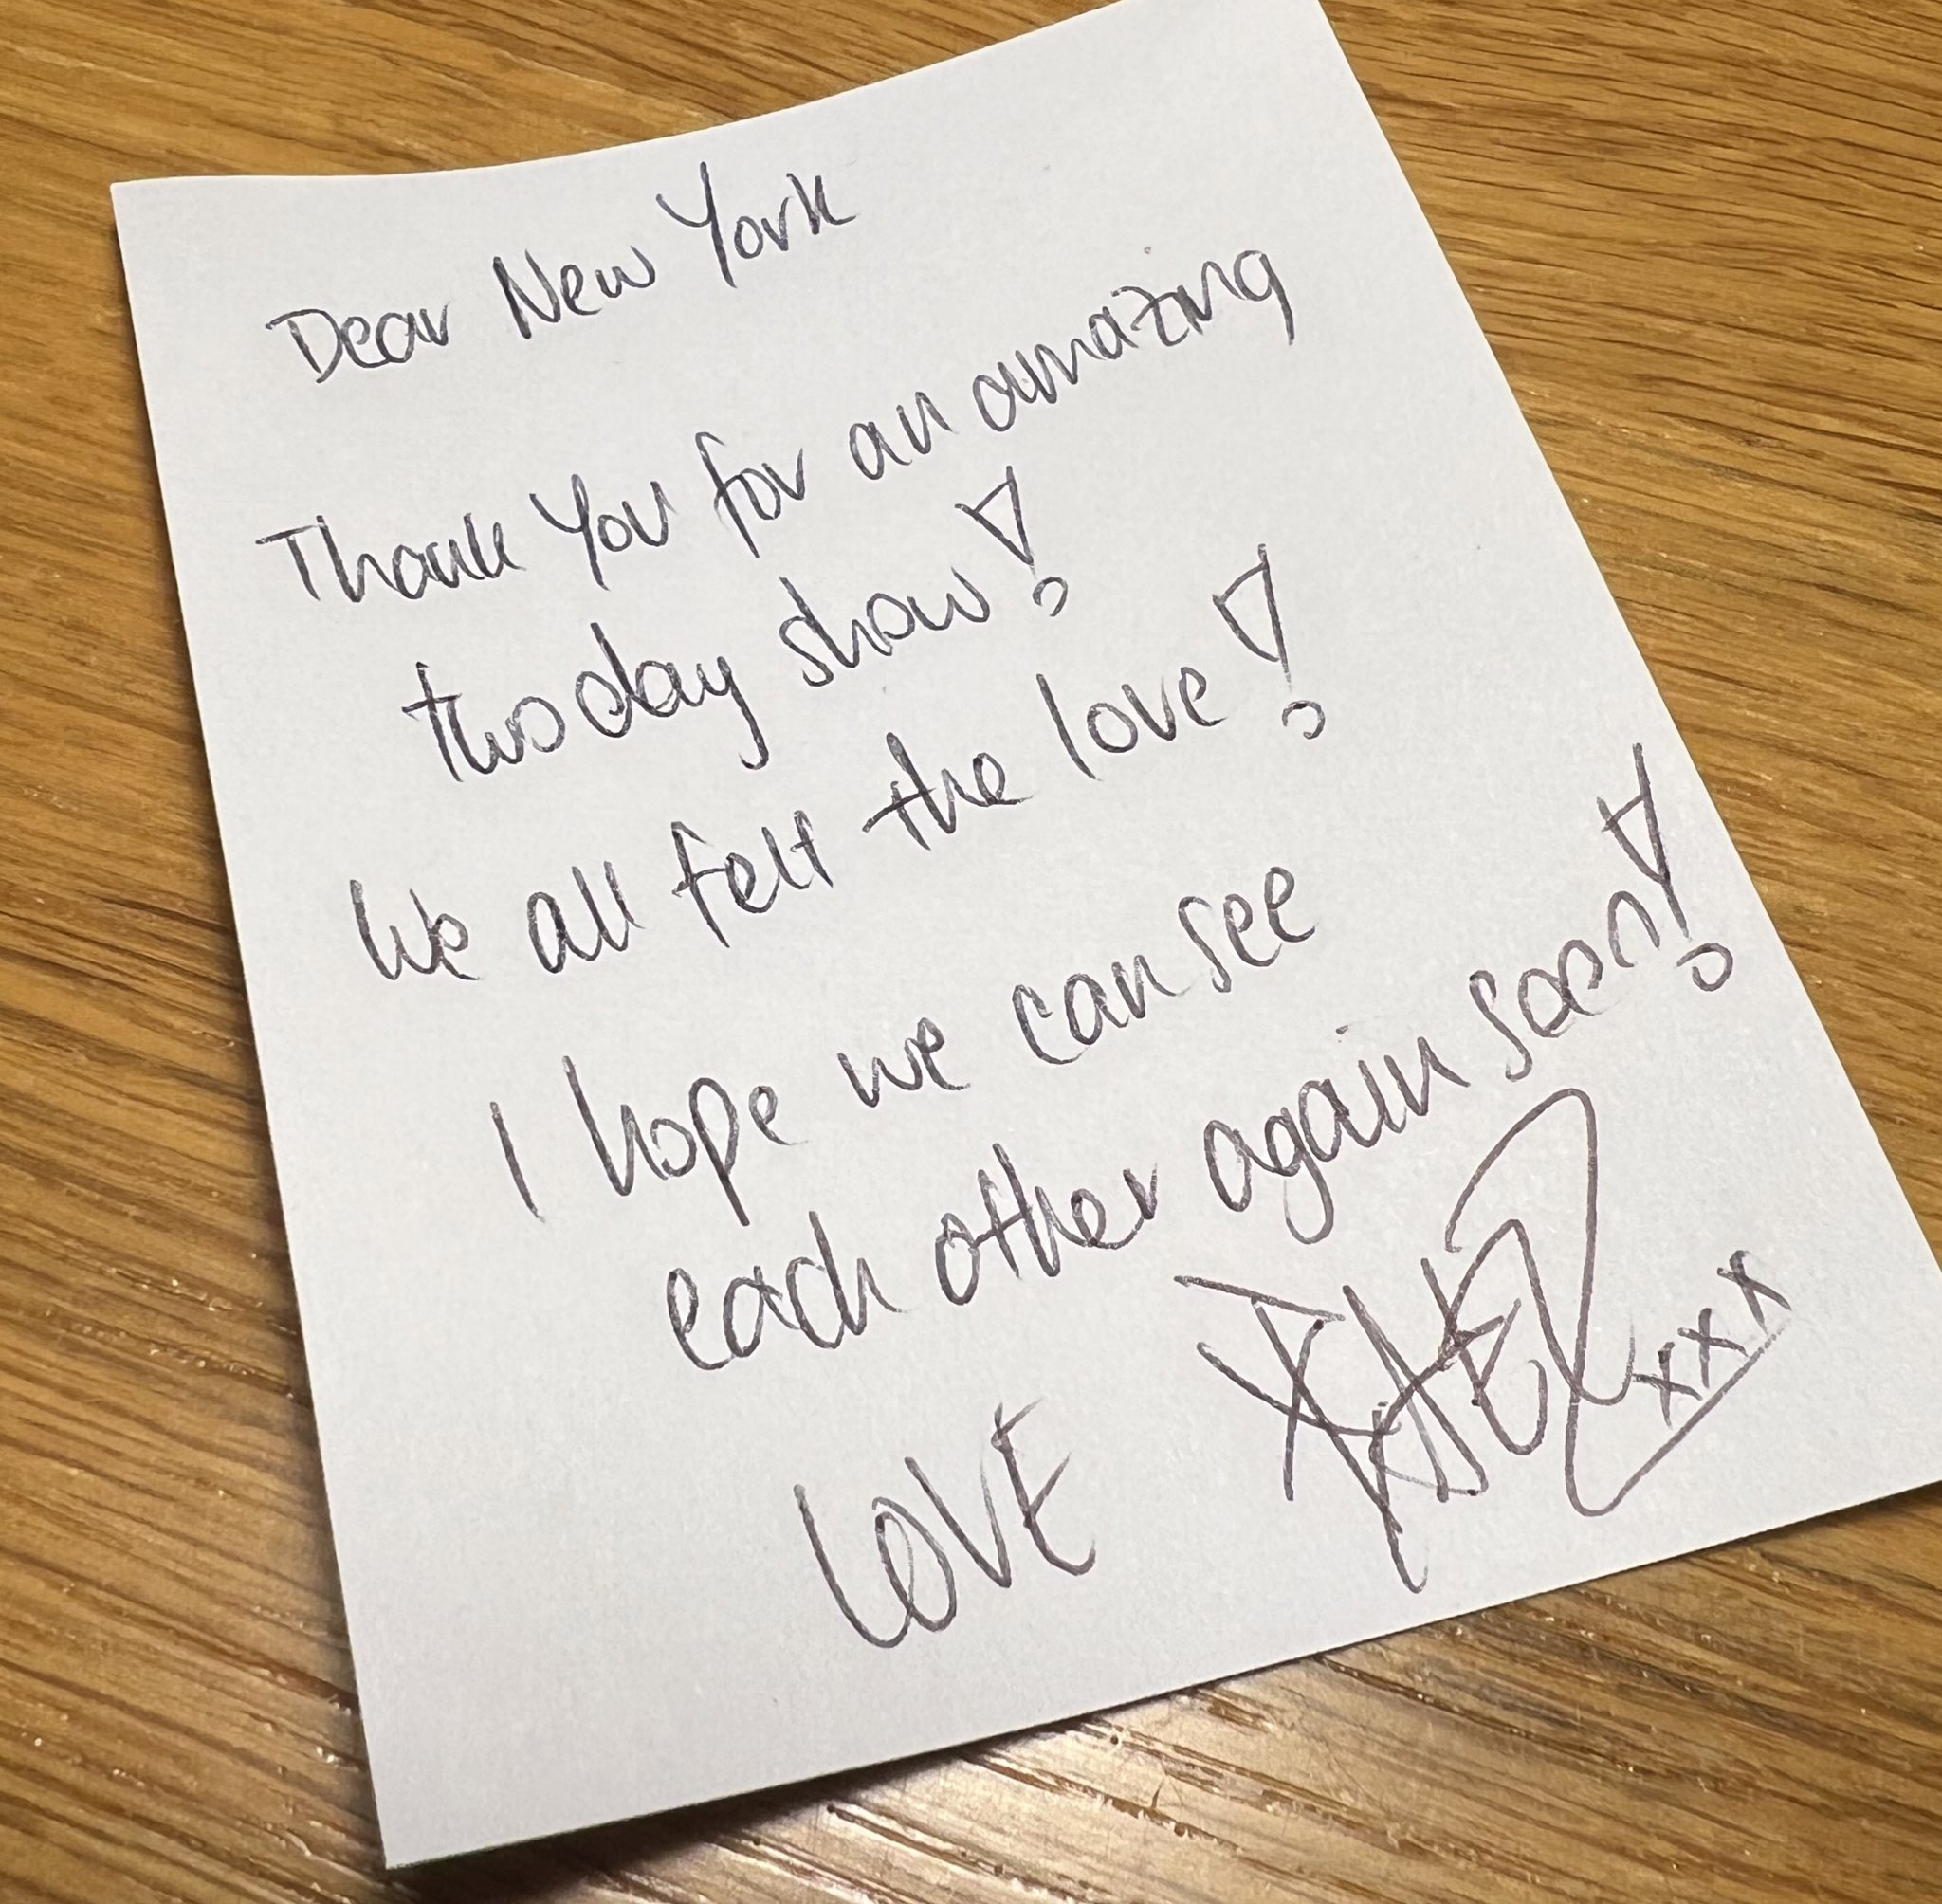 Dear New York
Thank You for an amazing
two day show!
We all felt the love!
I hope we can see
each other again soon!
LOVE xxx